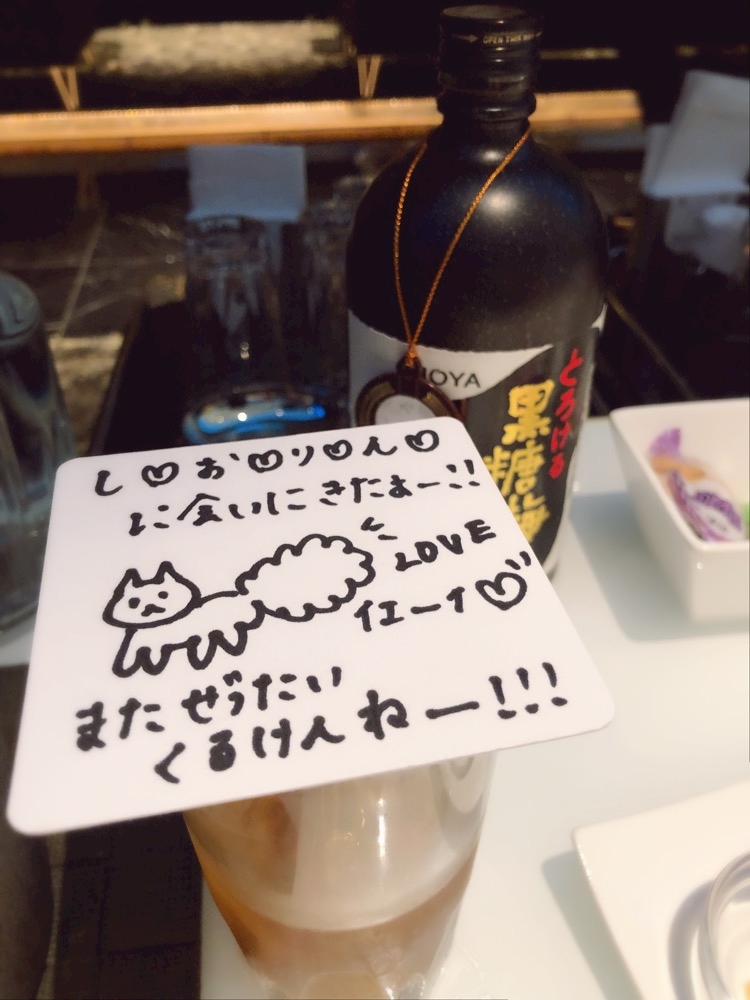 OPEN
CHOYA
とろける
黒糖梅酒
し♡お♡り♡ん♡
に会いにきたよー!!
LOVE
イエーイ♡
また ぜったい
くるけんねー!!!